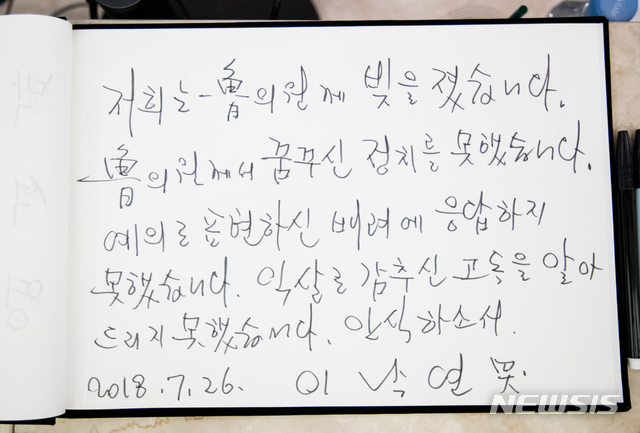 저희는 魯의원께 빚을 졌습니다.
魯의원께서 꿈꾸신 정치를 못했습니다.
예의로 표현하신 배려에 응답하지
못했습니다. 익살로 감추신 고독을 알아
드리지 못했습니다. 안식하소서.
2018.7.26. 이낙연 哭.
NEWSIS